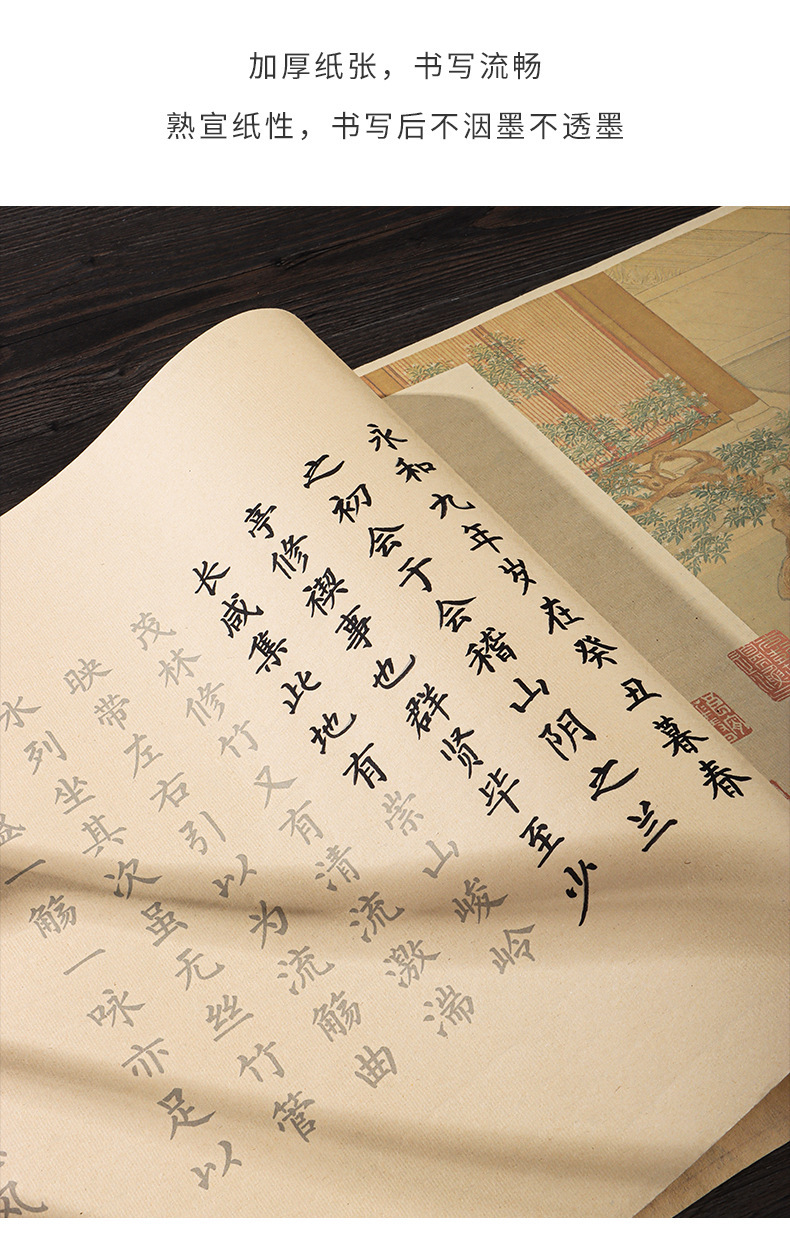 加厚纸张，书写流畅
熟宣纸性，书写后不洇墨不透墨
永和九年岁在癸丑暮春
之初会于会稽山阴之兰
亭修禊事也群贤毕至少
长咸集此地有崇山峻岭
茂林修竹又有清流激湍
映带左右引以为流觞曲
水列坐其次虽无丝竹管
盛一觞一咏亦足以
风